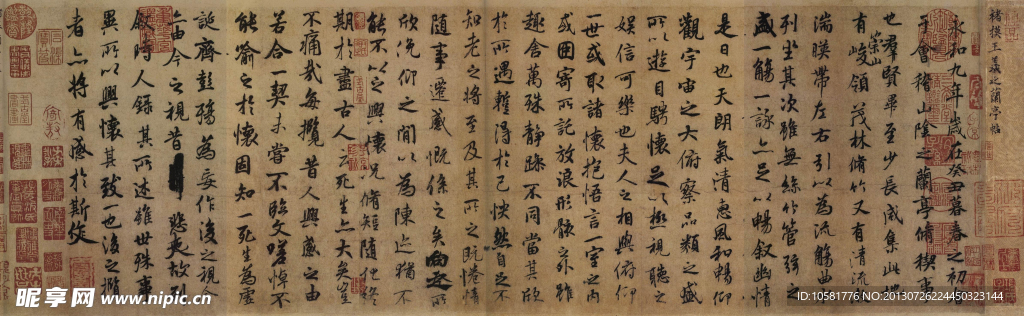 褚摸王羲之蘭亭帖
永和九年歲在癸丑暮春之初
于會稽山陰之蘭亭脩稧事
也羣賢畢至少長咸集此地
崇山
有峻領茂林脩竹又有清流
湍暎帶左右引以為流觴曲
列坐其次雖無絲竹管弦之
盛一觴一詠亦足以暢叙幽情
是日也天朗氣清惠風和暢仰
觀宇宙之大俯察品類之盛
所以遊目騁懷足以極視聽之
娛信可樂也夫人之相與俯仰
一世或取諸懷抱悟言一室之內
或因寄所託放浪形骸之外雖
趣舍萬殊靜躁不同當其欣
於所遇蹔得於己快然自足不
知老之將至及其所之既惓情
隨事遷感慨係之矣向之所
欣俛仰之閒以為陳迹猶不
能不以之興懷況脩短隨化終
期於盡古人云死生亦大矣豈
不痛哉每攬昔人興感之由
若合一契未嘗不臨文嗟悼不
能喻之於懷固知一死生為虛
誕齊彭殤為妄作後之視今
亦由今之視昔悲夫故列
敘時人錄其所述雖世殊事
異所以興懷其致一也後之攬
者亦將有感於斯文
昵享网 www.nipic.cn
ID:10581776 NO:20130726224450323144